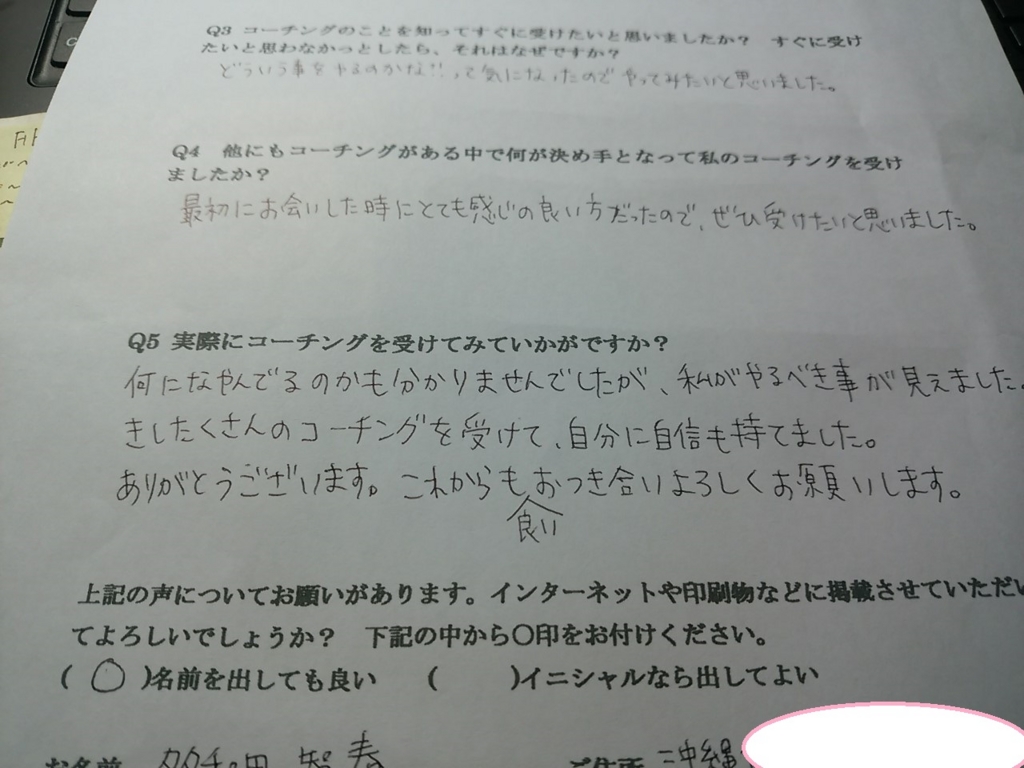 Q3 コーチングのことを知ってすぐに受けたいと思いましたか？　すぐに受け
たいと思わなかっとしたら、それはなぜですか？
どういう事をやるのかな!!って気になったのでやってみたいと思いました。
Q4　他にもコーチングがある中で何が決め手となって私のコーチングを受け
ましたか？
最初にお会いした時にとても感じの良い方だったので、ぜひ受けたいと思いました。
Q5 実際にコーチングを受けてみていかがですか？
何になやんでるのかも分かりませんでしたが、私がやるべき事が見えました。
きしたくさんのコーチングを受けて、自分に自信も持てました。
ありがとうございます。これからもおつき合いよろしくお願いします。
良い
上記の声についてお願いがあります。インターネットや印刷物などに掲載させていただい
てよろしいでしょうか？　下記の中から〇印をお付けください。
(○)名前を出しても良い　(　　)イニシャルなら出してよい
お名前　智寿　ご住所 沖縄